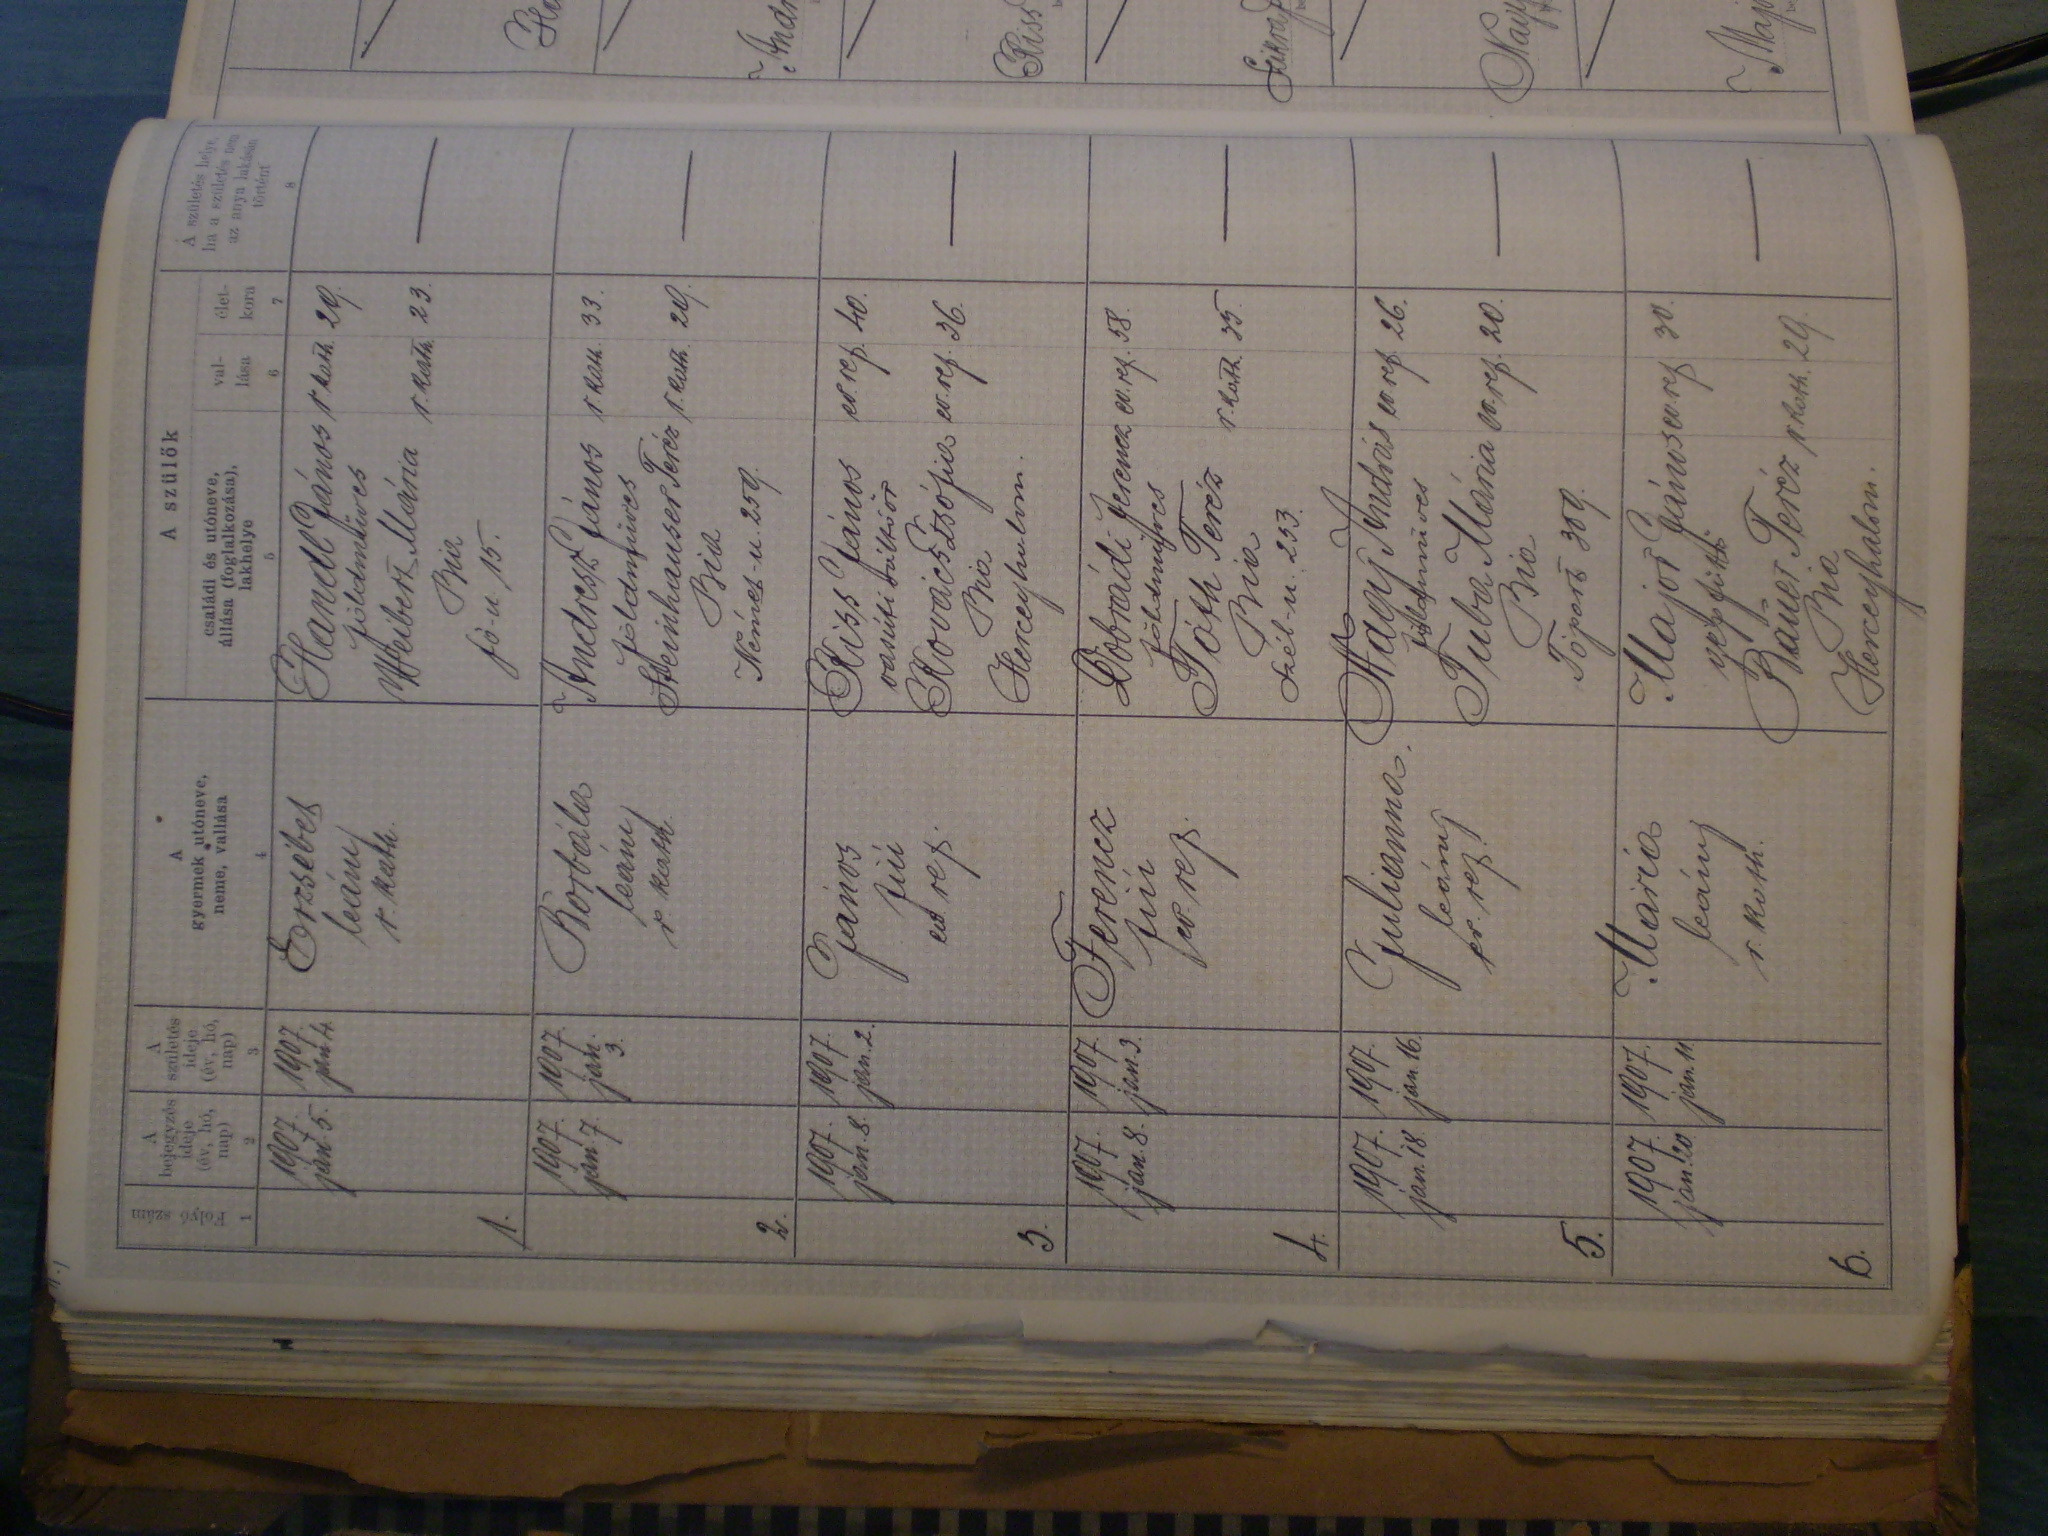 A szülők
1
Folyó szám
2
A
bejegyzés
ideje
(év, hó,
nap)
3
A
születés
ideje
(év, hó,
nap)
4
A
gyermek utóneve,
neme, vallása
5
családi és utóneve,
állása (foglalkozása),
lakhelye
6
val-
lása
7
élet-
kora
8
A születés helye,
ha a születés nem
az anya lakásán
történt
1.
1907.
jan. 5.
1907.
jan. 4.
Erzsébet
leány
r. kath.
Handl János r. kath. 29.
földmüves
Weibert Mária r. kath. 23.
Bia
fö-u. 15.
—
2.
1907.
jan. 7.
1907
jan.
3.
Borbála
leány
r. kath.
Andreszt János r. kath. 33.
földmüves
Steinhauser Teréz r. kath. 29.
Bia
Német-u. 259.
—
3.
1907.
jan. 8.
1907.
jan. 2.
János
fiú
ev. ref.
Kiss János ev. ref. 40.
vasúti váltóör
Kovács Zsófia ev. ref. 36.
Bia
Herceghalom.
—
4.
1907.
jan. 8.
1907.
jan. 3.
Ferencz
fiú
ev. ref.
Dobrádi Ferencz ev. ref. 58.
földmüves
Tóth Teréz r. kath. 35.
Bia
Szél-u. 253.
—
5.
1907.
jan. 18.
1907.
jan. 16.
Julianna.
leány
ev. ref.
Nagy András ev. ref. 26.
földmüves
Tuba Mária ev. ref. 20.
Bia
309.
—
6.
1907.
jan. 20
1907.
jan. 11.
Mária
leány
r. kath.
Major János ev. ref. 30.
gépfütö
Bauer Teréz r. kath. 29.
Bia
Herceghalom.
—
Kiss
Nagy